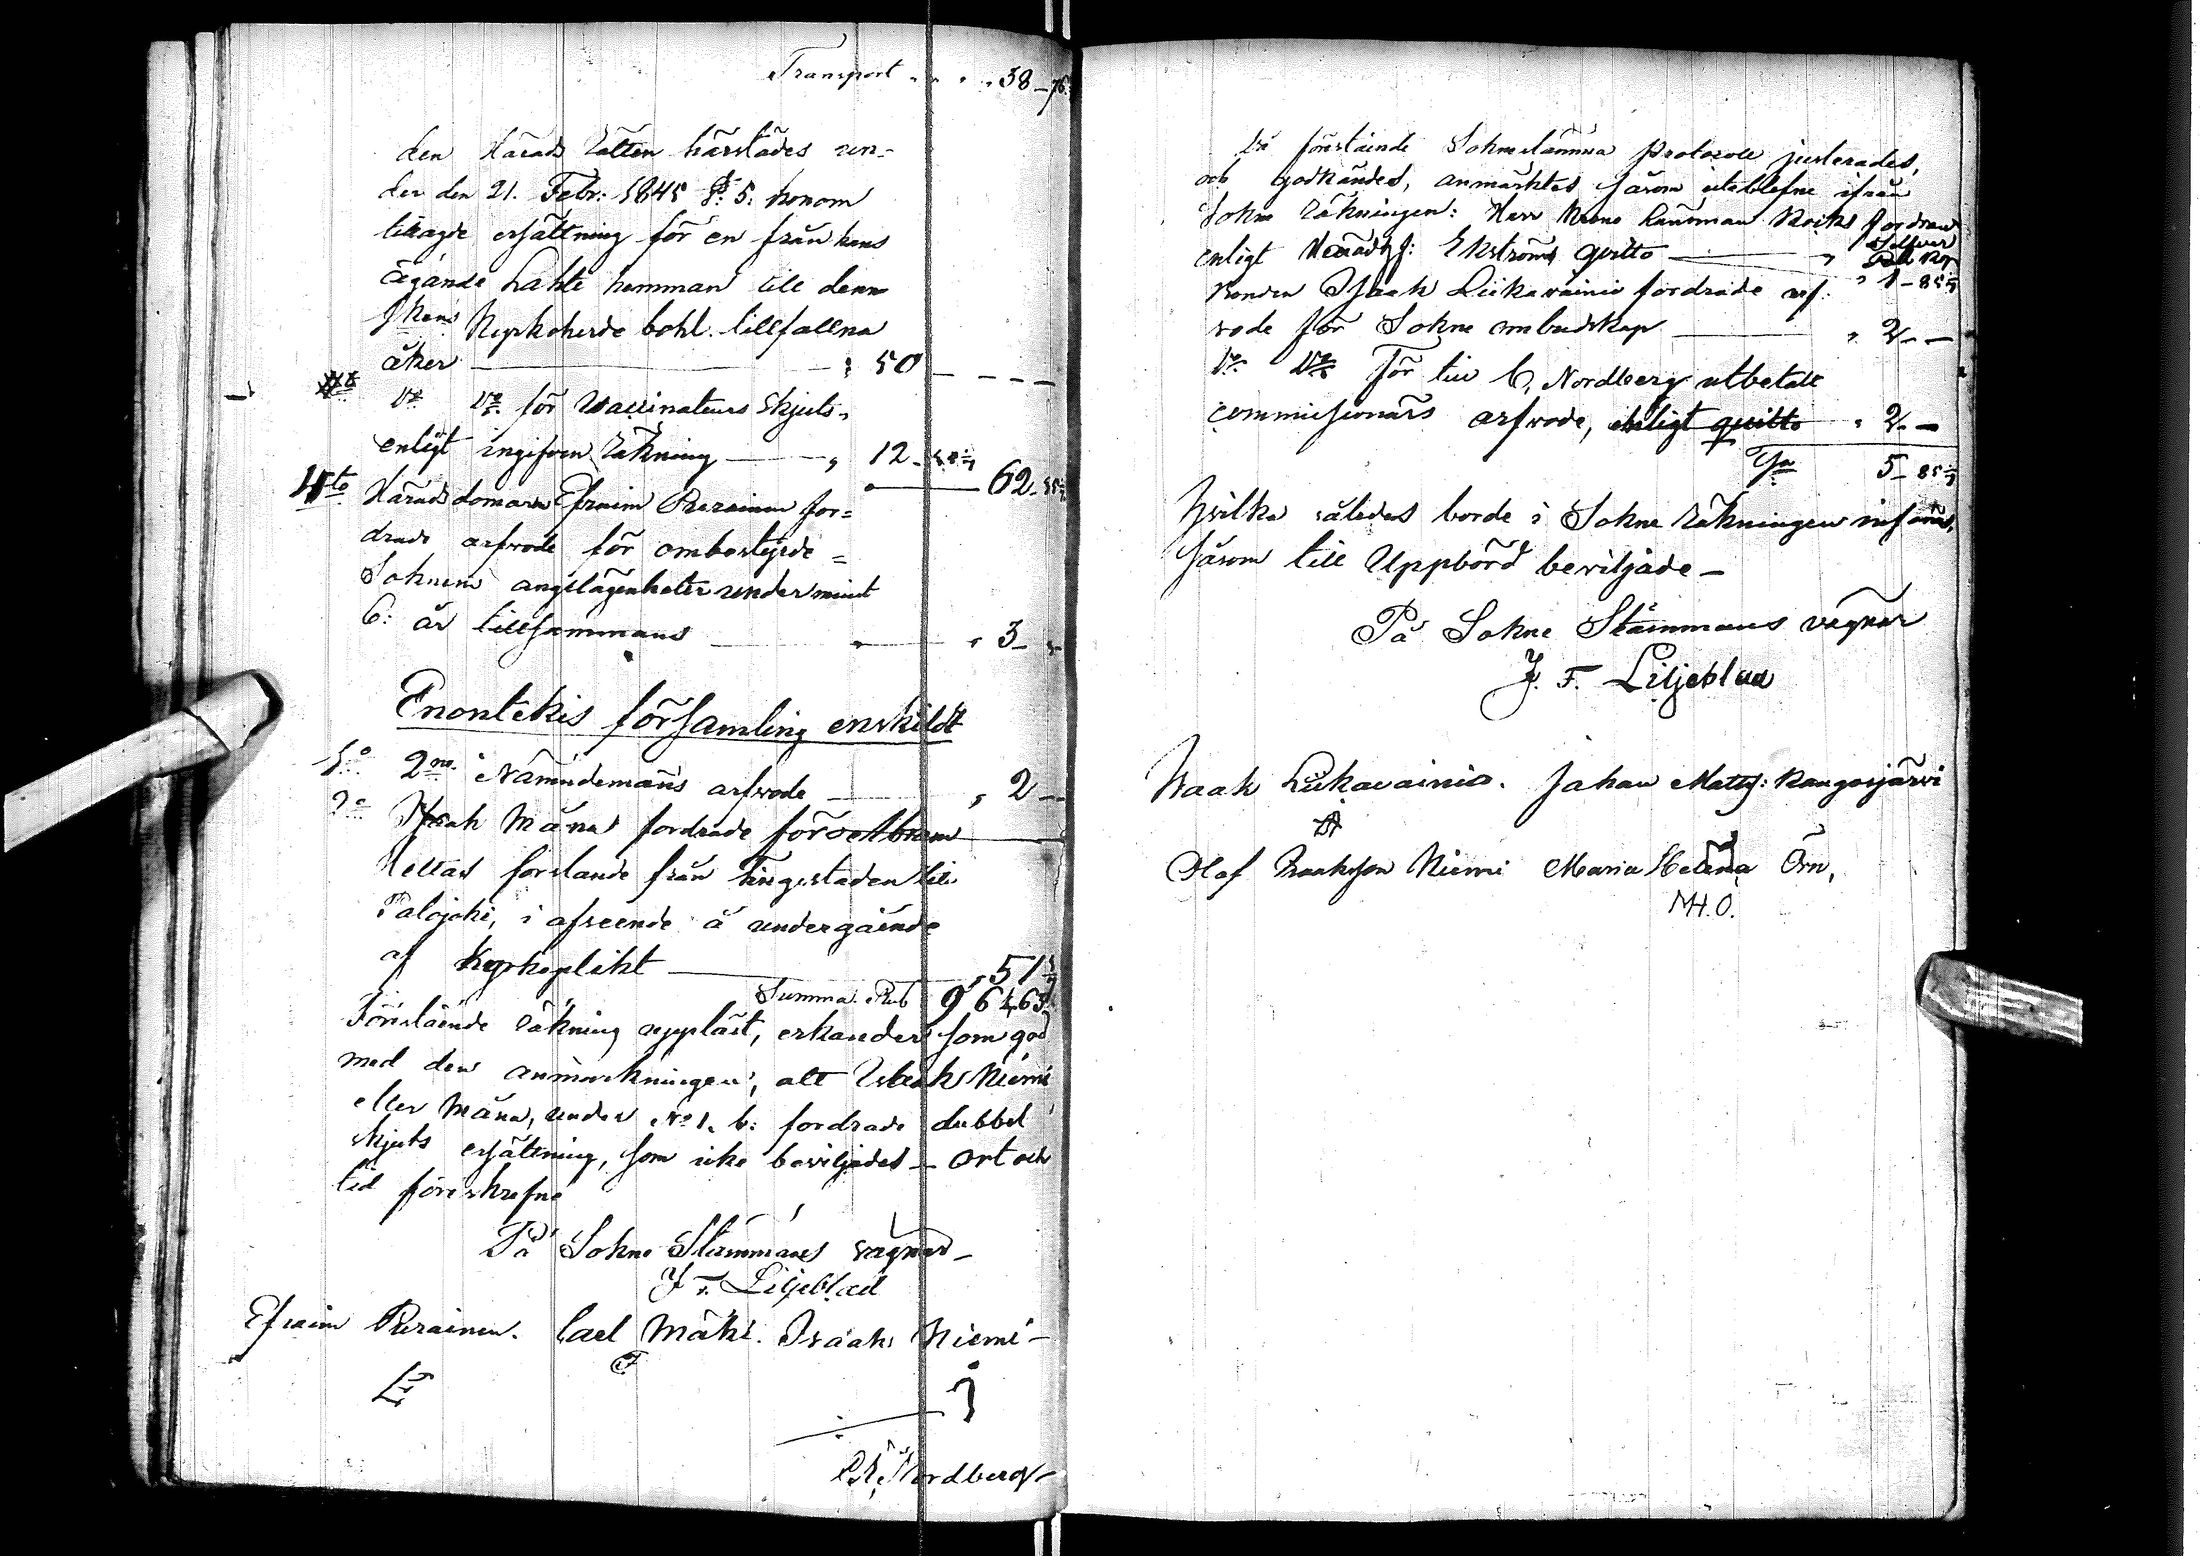 Transport . . . . 38 – 76
den Härads Rätten härstädes un-
der den 21. Febr: 1845 §: 5: honom
tillagde ersättning för en från hans
Ägande Lahti hemman till denne
Kyrkoherde bohl. tillfallna
åker — 50 – – – –
Do Do för Vaccinateurs Skjuts,
enligt ingifven Räkning — " 12 –
62 –
4to Härads domaren Efraim Rerainen for=
drade arfvode för ombestyrde =
Soknens angelägenheter under minst
6: år tillsammans — " 3 –
Enontekis församling enskildt
1o 2ne Nämndemäns arfvode — " 2 –
2o Isaak Mäna fordrade för
Hettas forslande från Tingsstaden till
Palojoki, i afseende å undergående
af Kyrkoplikt — " 51
Summa Rub 96 463
Förestående räkning uppläst, erkändes som god
med den anmärkningen, att Isaak Niemi
eller Mäna, under No 1. b: fordrade dubbel
skjuts ersättning, som icke beviljades – Ort och
tid föreskrefne
På Sokne Stämmans vägnar –
J F. Liljeblad
Efraim Rerainen. Carl Mäki. Isaak Niemi –
Nordberg
Då förestående Sokne stämma Protocoll justerades,
och godkändes, anmärktes såsom uteblefne ifrån
Sokne Räkningen: Herr Krono Länsman Kocks fordran
enligt Häradsh: Ekströms qvitto — " Silfver
Rub Kop
Bonden Isaak Liikavainio fordrade arf: " 1 – 85
vode för Sokne ombudskap — " 2 – –
Do Do För till C. Nordberg utbetalt
commissionärs arfvode, enligt qvitto " 2 –
Sa 5 – 85
hvilka således borde i Sokne Räkningen införas,
såsom till Uppbörd beviljade –
På Sokne Stämmans vägnar
J. F. Liljeblad
Isaak Liikavainio. Johan Matts: Kangosjärvi
Olaf Isaksson Niemi Maria Helena Örn,
M.H.O.